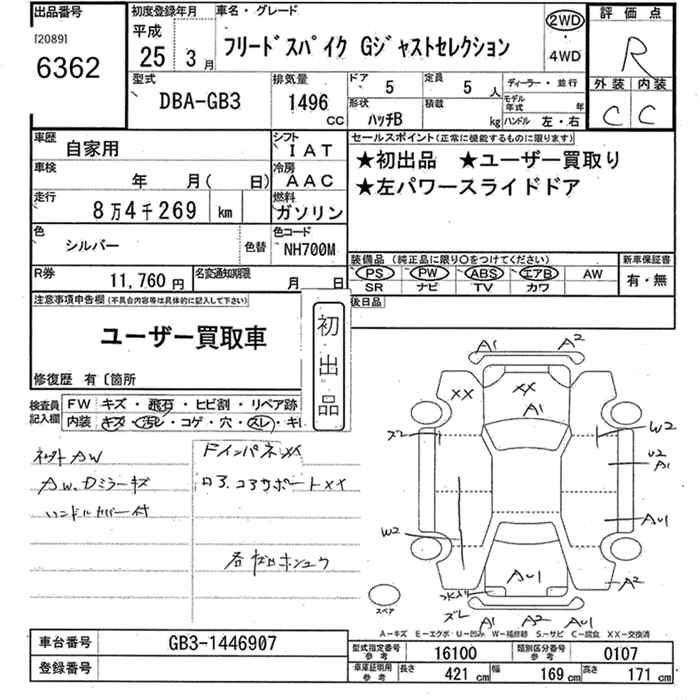 出品番号
[2089]
6362
初度登録年月
平成
25 3月
車名・グレード
フリードスパイク Gジャストセレクション
2WD
4WD
評価点
R
外装 内装
C C
型式
DBA-GB3
排気量
1496
CC
ドア
5
定員
5 人
形状
ハッチB
積載
kg
ディーラー・並行
モデル年式 年
ハンドル 左・右
車歴
自家用
シフト
IAT
車検
年 月( 日)
冷房
AAC
走行
8万4千269 km
燃料
ガソリン
色
シルバー
色替
色コード
NH700M
R券
11,760円
名変通知期限
月 日
セールスポイント(正常に機能するものに限ります)
★初出品 ★ユーザー買取り
★左パワースライドドア
装備品(純正品に限り○をつけてください)
PS PW ABS エアB AW
SR ナビ TV カワ
新車保証書
有・無
後日品
注意事項申告欄(不具合内容等は具体的に記入して下さい)
ユーザー買取車
修復歴 有〔箇所
初出品
検査員記入欄
FW キズ・飛石・ヒビ割・リペア跡
内装 キズ・汚レ・コゲ・穴・スレ・キレ
ネットAW
AW、Dミラーキズ
ハンドルカバー付
FインパネXX
ロア、コアサポートXX
A1 A2
XX XX
A1
ズレ
W2
U2
A1
AU1
W2
AU1
A2
ズレ
A1 A2 AU1
スペア
A-キズ E-エクボ U-凹み W-補修跡 S-サビ C-腐食 XX-交換済
車台番号
GB3-1446907
登録番号
型式指定番号
参考
16100
類別区分番号
参考
0107
車庫証明用
参考
長さ 421 cm 幅 169 cm 高さ 171 cm